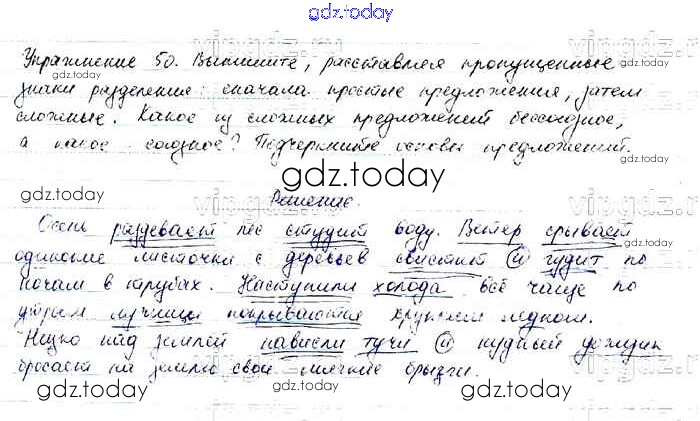 gdz.today
Упражнение 50. Выпишите, расставляя пропущенные
gdz.today
знички разделение: сначала простые предложения, затем
сложные. Какое из сложных предложений бессоюзное,
а какое союзное? Подчеркните основы предложений.
gdz.today
gdz.today
Решение.
Осень раздевает лес студит воду. Ветер срывает
одинокие листочки с деревьев свистит и гудит по
ночам в трубах. Наступили холода всё чаще по
утрам лужицы покрываются хрупким ледком.
Низко над землей нависли тучи и нудный дождик
бросает на землю свои мелкие брызги.
gdz.today
gdz.today